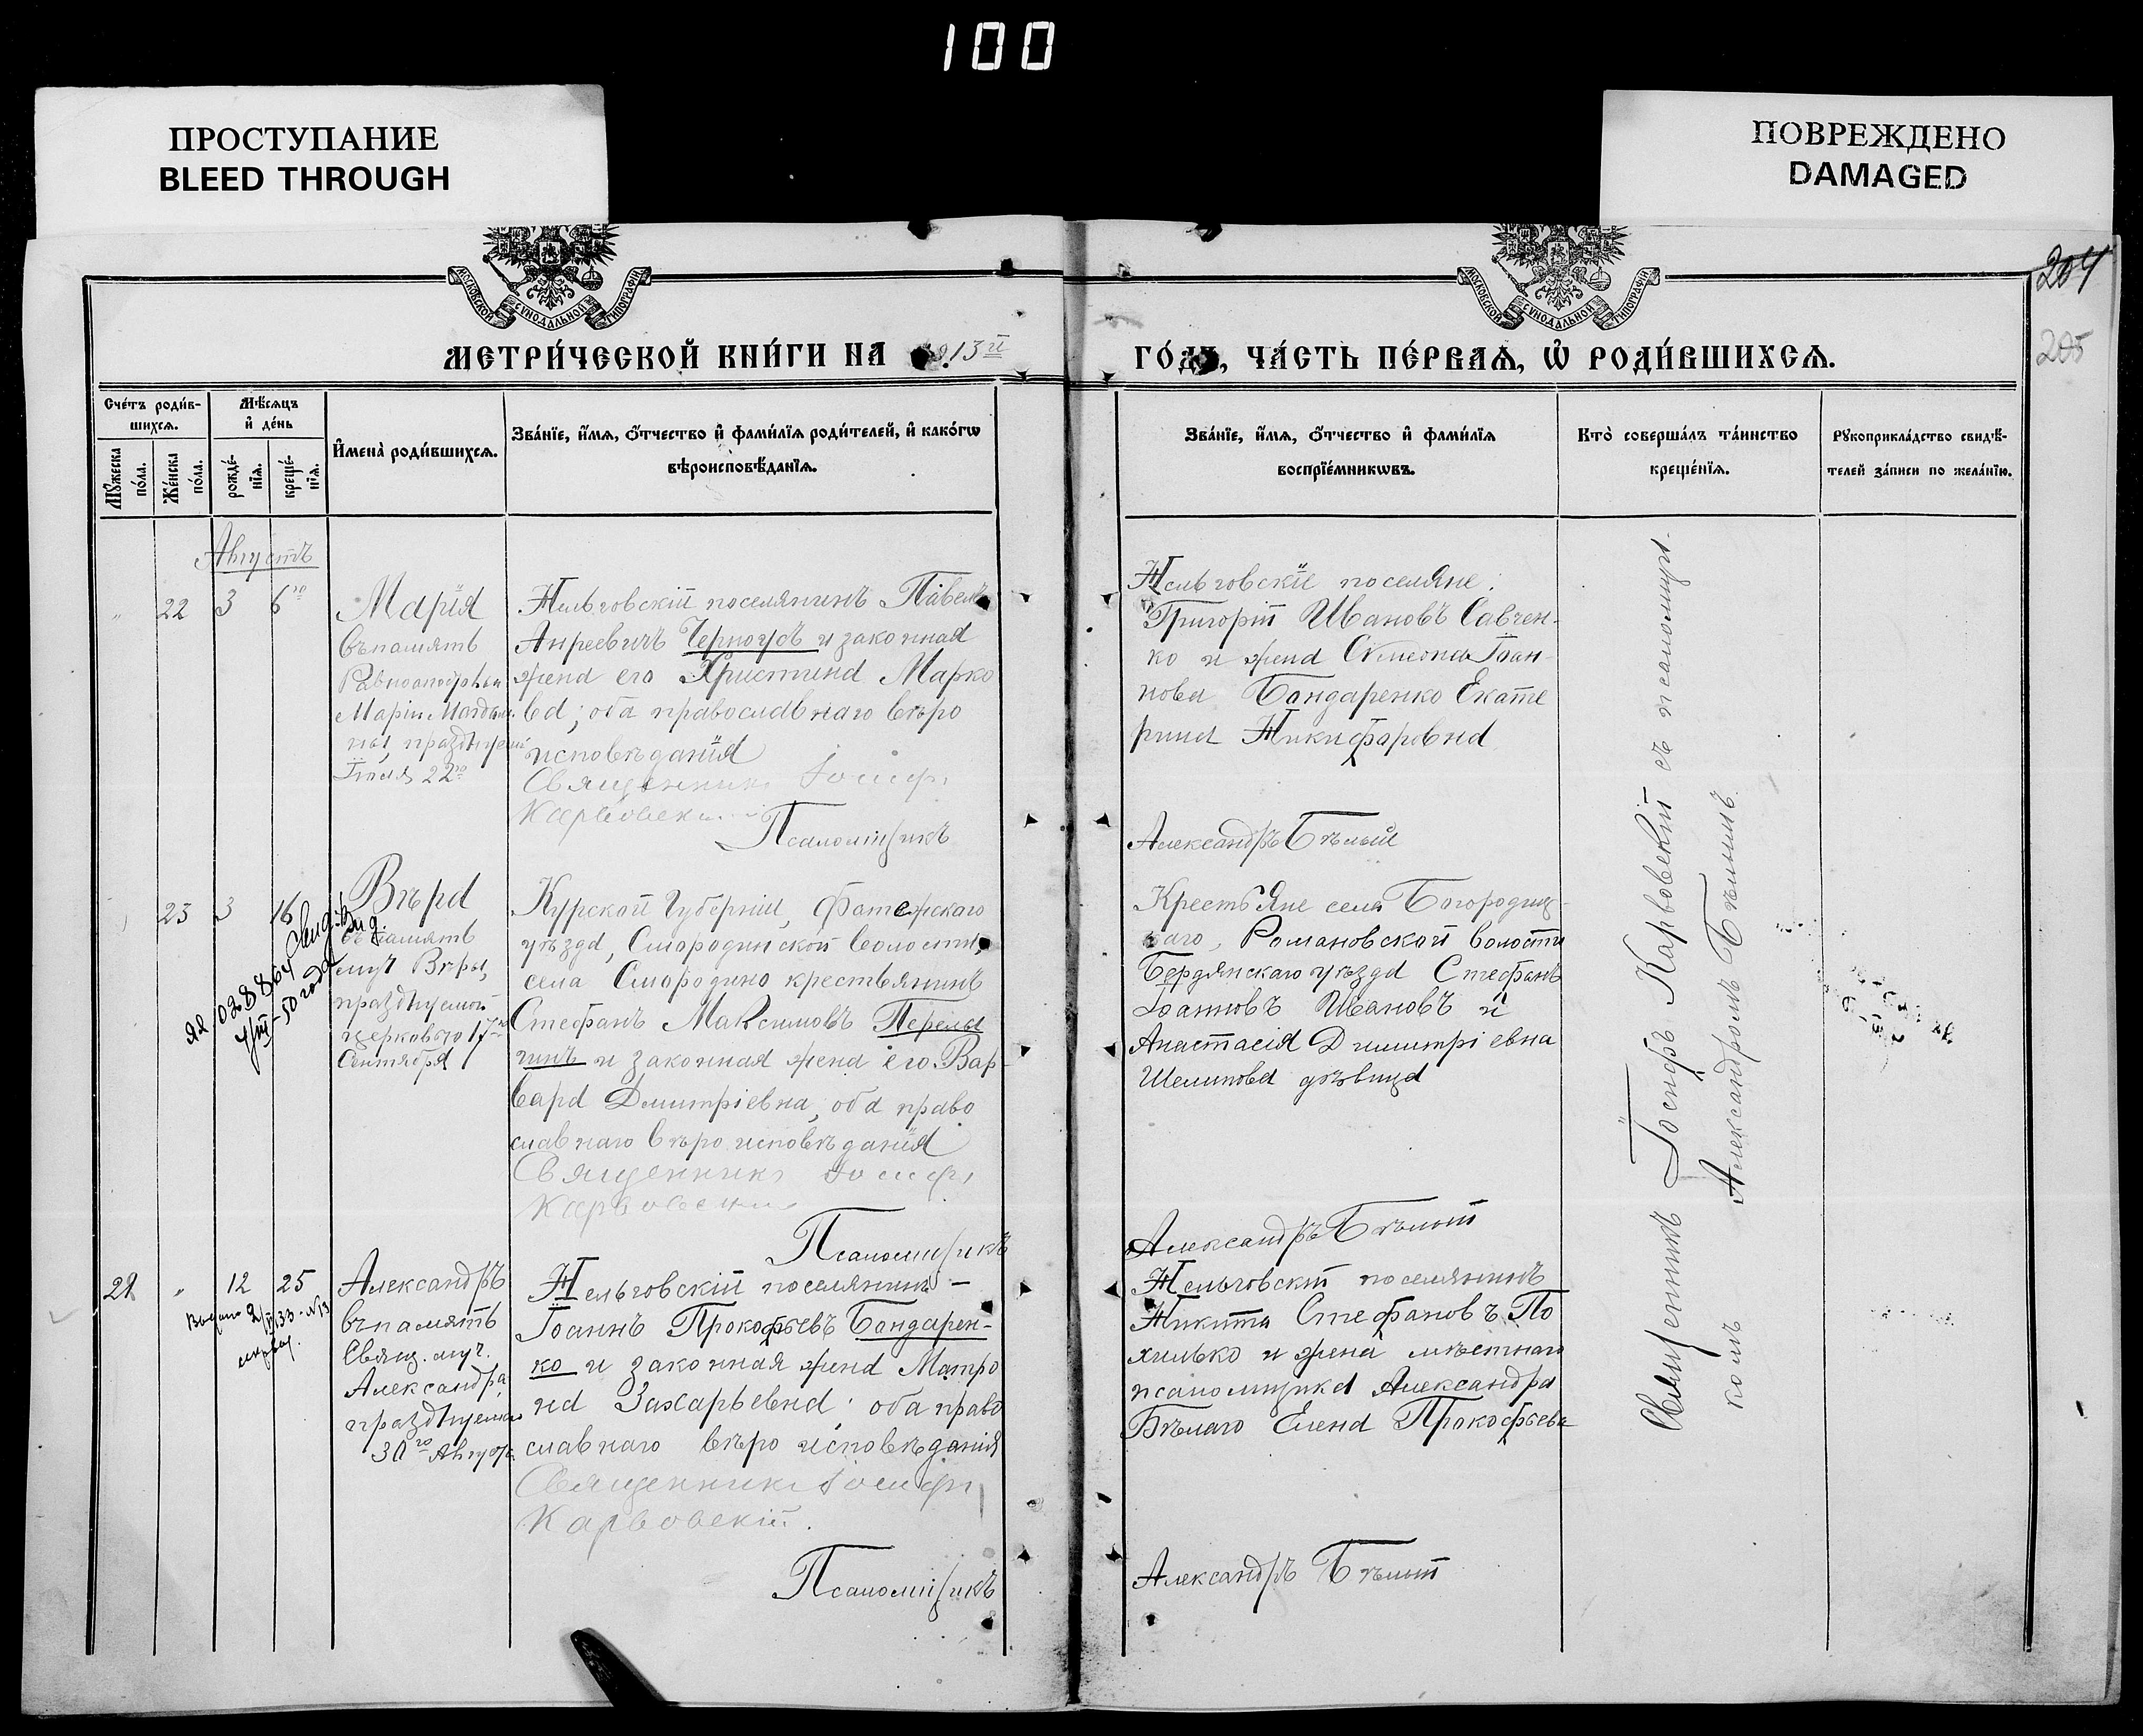 100
ПРОСТУПАНИЕ
BLEED THROUGH
ПОВРЕЖДЕНО
DAMAGED
МОСКОВСКОЙ СУНОДАЛЬНОЙ ТИПОГРАФІИ
МОСКОВСКОЙ СУНОДАЛЬНОЙ ТИПОГРАФІИ
204
205
МЕТРИ́ЧЕСКОЙ КНИ́ГИ НА 1913й
ГО́ДЪ, ЧА́СТЬ ПЕ́РВАѦ, Ѡ҆ РОДИ́ВШИХСѦ.
Сче́тъ роди́в-
шихсѧ.
Мѣ́сѧцъ
и҆ де́нь
Мꙋ́жеска
по́ла.
Же́нска
по́ла.
рожде́-
нїѧ.
креще́-
нїѧ.
И҆мена̀ роди́вшихсѧ.
Зва́нїе, и҆́мѧ, ѻ҆́тчество и҆ фами́лїѧ роди́телей, и҆ како́гѡ
вѣроисповѣ́данїѧ.
Зва́нїе, и҆́мѧ, ѻ҆́тчество и҆ фами́лїѧ
воспрїе́мникѡвъ.
Кто̀ соверша́лъ та́инство
креще́нїѧ.
Рꙋкоприкла́дство свидѣ́-
телей за́писи по жела́нїю.
Августъ
22 3 6го
Марія
въ память
Равноапостольн.
Маріи Магдали-
ны, празднуемой
Іюля 22го
Нельговскій поселянинъ Павелъ
Анреевичъ Черноусъ и законная
жена его Христина Марко
ва; оба православнаго вѣро
исповѣданія
Священникъ Іосифъ
Карвовскій
Псаломщикъ
Нельговскіе поселяне:
Григорій Ивановъ Савчен-
ко и жена Симеона Іоан-
нова Бондаренко Екате
рина Никифаровна
Александръ Бѣлый
23 3 16
Вѣра
въ память
муч. Вѣры,
празднуемой
церковью 17го
Сентября
Курской Губерніи, Фатежскаго
уѣзда, Смородинской волости,
села Смородино крестьянинъ
Стефанъ Максимовъ Перелы
гинъ и законная жена его Вар-
вара Димитріевна, оба право
славнаго вѣро исповѣданія
Священникъ Іосифъ
Карвовскій
Псаломщикъ
Крестьяне села Богородиц-
каго, Романовской волости
Бердянскаго уѣзда Стефанъ
Іоанновъ Ивановъ и
Анастасія Димитріевна
дѣвица
Александръ Бѣлый
12 25
Александръ
въ память
Свящ. муч.
Александра,
празднуемаго
30го Августа
Нельговскій поселянинъ –
Іоаннъ Прокофьевъ Бондарен-
ко и законная жена Матро
на Захарьевна; оба право
славнаго вѣро исповѣданія
Священникъ Іосифъ
Карвовскій.
Псаломщикъ
Нельговскій поселянинъ
Никита Стефановъ По
хилько и жена мѣстнаго
псаломщика Александра
Бѣлаго Елена Прокофьева
Александръ Бѣлый
Священникъ Іосифъ Карвовскій съ псаломщи-
комъ Александромъ Бѣлымъ.